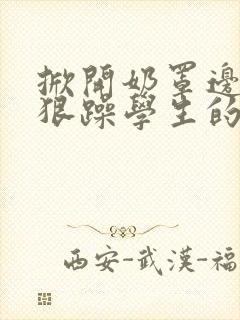 掀開奶罩邊
狠躁學生的
西安-武漢-福